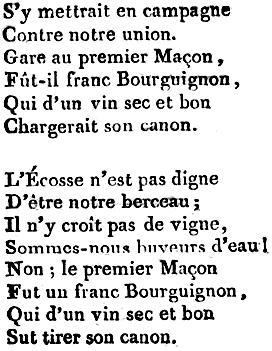 S'y mettrait en campagne
Contre notre union.
Gare au premier Maçon,
Fût-il franc Bourguignon,
Qui d'un vin sec et bon
Chargerait son canon.

L'Écosse n'est pas digne
D'être notre berceau ;
Il n'y croît pas de vigne,
Sommes-nous buveurs d'eau !
Non ; le premier Maçon
Fut un franc Bourguignon,
Qui d'un vin sec et bon
Sut tirer son canon.